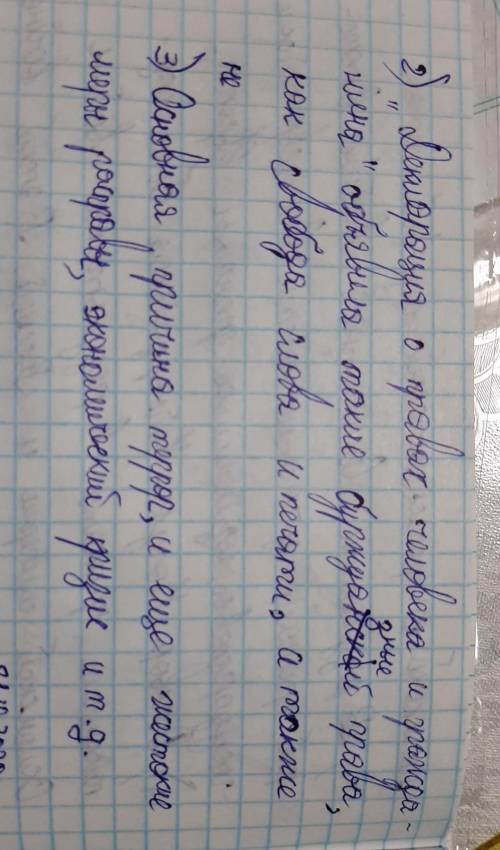 2) "Декларация о правах человека и гражда-
нина" объявила такие буржуазные права,
как свобода слова и печати, а также
не
3) Основная причина террор, и еще жестокие
меры расправы, экономический кризис и т.д.